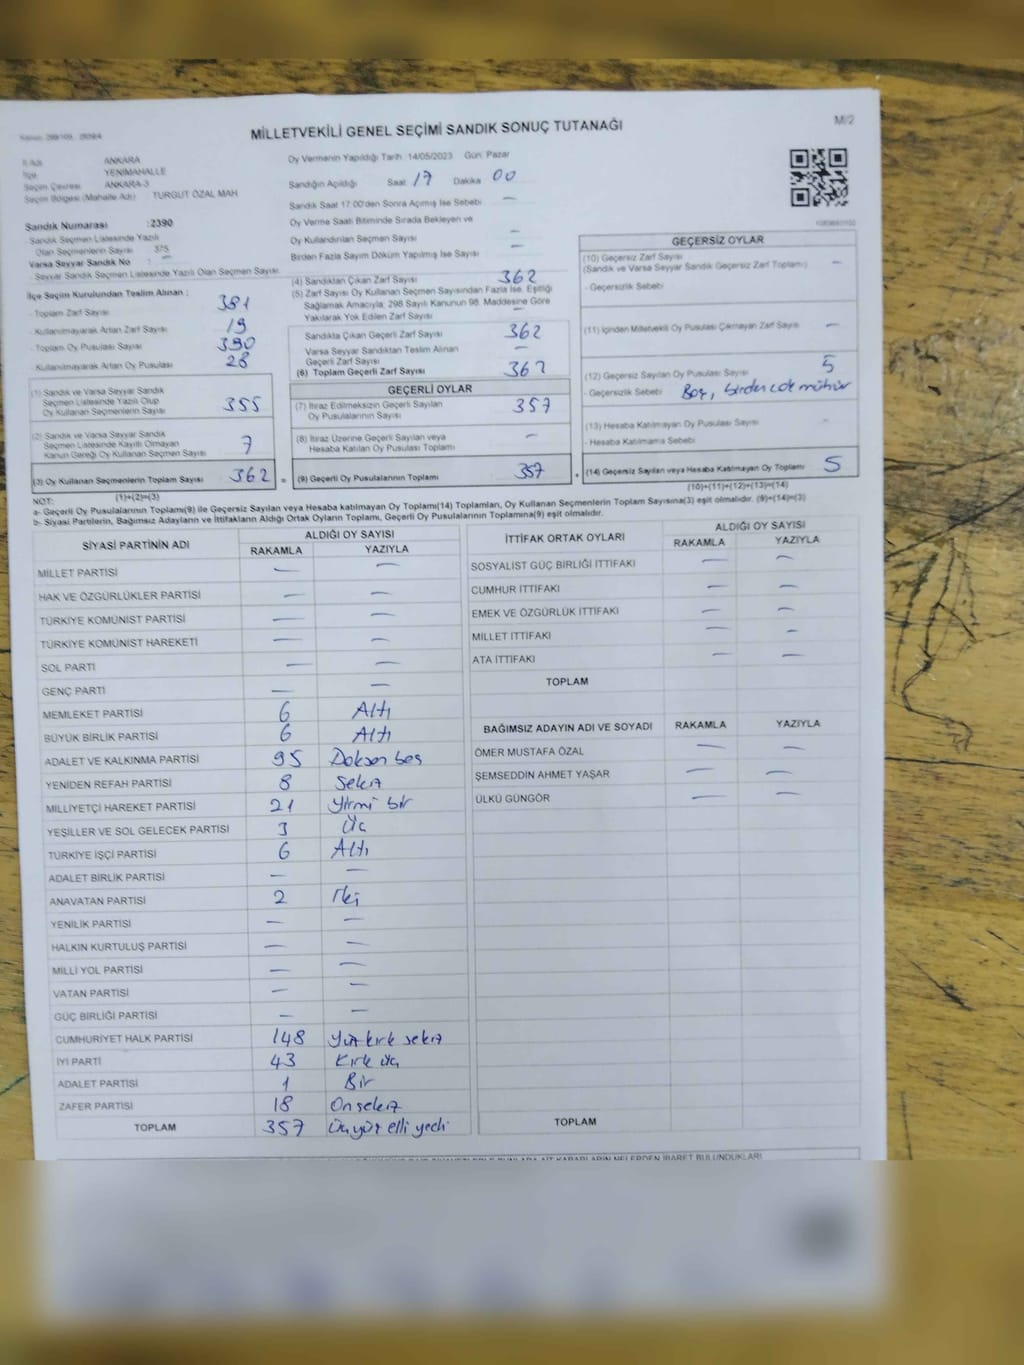 MİLLETVEKİLİ GENEL SEÇİMİ SANDIK SONUÇ TUTANAĞI
M/2
İl Adı ANKARA
İlçe YENİMAHALLE
Seçim Çevresi ANKARA-3
Seçim Bölgesi (Mahalle Adı) TURGUT ÖZAL MAH
Sandık Numarası :2390
Sandık Seçmen Listesinde Yazılı
Olan Seçmenlerin Sayısı 375
Varsa Seyyar Sandık No : —
Seyyar Sandık Seçmen Listesinde Yazılı Olan Seçmen Sayısı
İlçe Seçim Kurulundan Teslim Alınan :
- Toplam Zarf Sayısı 381
- Kullanılmayarak Artan Zarf Sayısı 19
- Toplam Oy Pusulası Sayısı 390
- Kullanılmayarak Artan Oy Pusulası 28
(1) Sandık ve Varsa Seyyar Sandık
Seçmen Listesinde Yazılı Olup
Oy Kullanan Seçmenlerin Sayısı 355
(2) Sandık ve Varsa Seyyar Sandık
Seçmen Listesinde Kayıtlı Olmayan
Kanun Gereği Oy Kullanan Seçmen Sayısı 7
(3) Oy Kullanan Seçmenlerin Toplam Sayısı 362
(1)+(2)=(3)
Oy Vermenin Yapıldığı Tarih :14/05/2023 Gün: Pazar
Sandığın Açıldığı Saat 17 Dakika 00
Sandık Saat 17:00'den Sonra Açılmış İse Sebebi —
Oy Verme Saati Bitiminde Sırada Bekleyen ve
Oy Kullandırılan Seçmen Sayısı —
Birden Fazla Sayım Döküm Yapılmış İse Sayısı —
(4) Sandıktan Çıkan Zarf Sayısı 362
(5) Zarf Sayısı Oy Kullanan Seçmen Sayısından Fazla İse, Eşitliği
Sağlamak Amacıyla, 298 Sayılı Kanunun 98. Maddesine Göre
Yakılarak Yok Edilen Zarf Sayısı —
Sandıkta Çıkan Geçerli Zarf Sayısı 362
Varsa Seyyar Sandıktan Teslim Alınan
Geçerli Zarf Sayısı —
(6) Toplam Geçerli Zarf Sayısı 362
GEÇERLİ OYLAR
(7) İtiraz Edilmeksizin Geçerli Sayılan
Oy Pusulalarının Sayısı 357
(8) İtiraz Üzerine Geçerli Sayılan veya
Hesaba Katılan Oy Pusulası Toplamı —
= (9) Geçerli Oy Pusulalarının Toplamı 357
GEÇERSİZ OYLAR
(10) Geçersiz Zarf Sayısı —
(Sandık ve Varsa Seyyar Sandık Geçersiz Zarf Toplamı)
- Geçersizlik Sebebi
(11) İçinden Milletvekili Oy Pusulası Çıkmayan Zarf Sayısı —
(12) Geçersiz Sayılan Oy Pusulası Sayısı 5
- Geçersizlik Sebebi Boş, birden çok mühür
(13) Hesaba Katılmayan Oy Pusulası Sayısı —
- Hesaba Katılmama Sebebi
+ (14) Geçersiz Sayılan veya Hesaba Katılmayan Oy Toplamı 5
(10)+(11)+(12)+(13)=(14)
NOT:
a- Geçerli Oy Pusulalarının Toplamı(9) ile Geçersiz Sayılan veya Hesaba katılmayan Oy Toplamı(14) Toplamları, Oy Kullanan Seçmenlerin Toplam Sayısına(3) eşit olmalıdır. (9)+(14)=(3)
b- Siyasi Partilerin, Bağımsız Adayların ve İttifakların Aldığı Ortak Oyların Toplamı, Geçerli Oy Pusulalarının Toplamına(9) eşit olmalıdır.
SİYASİ PARTİNİN ADI ALDIĞI OY SAYISI
RAKAMLA YAZIYLA
MİLLET PARTİSİ — —
HAK VE ÖZGÜRLÜKLER PARTİSİ — —
TÜRKİYE KOMÜNİST PARTİSİ — —
TÜRKİYE KOMÜNİST HAREKETİ — —
SOL PARTİ — —
GENÇ PARTİ — —
MEMLEKET PARTİSİ 6 Altı
BÜYÜK BİRLİK PARTİSİ 6 Altı
ADALET VE KALKINMA PARTİSİ 95 Doksan beş
YENİDEN REFAH PARTİSİ 8 Sekiz
MİLLİYETÇİ HAREKET PARTİSİ 21 Yirmi bir
YEŞİLLER VE SOL GELECEK PARTİSİ 3 Üç
TÜRKİYE İŞÇİ PARTİSİ 6 Altı
ADALET BİRLİK PARTİSİ — —
ANAVATAN PARTİSİ 2 İki
YENİLİK PARTİSİ — —
HALKIN KURTULUŞ PARTİSİ — —
MİLLİ YOL PARTİSİ — —
VATAN PARTİSİ — —
GÜÇ BİRLİĞİ PARTİSİ — —
CUMHURİYET HALK PARTİSİ 148 Yüz kırk sekiz
İYİ PARTİ 43 Kırk üç
ADALET PARTİSİ 1 Bir
ZAFER PARTİSİ 18 Onsekiz
TOPLAM 357 Üçyüz elli yedi
İTTİFAK ORTAK OYLARI ALDIĞI OY SAYISI
RAKAMLA YAZIYLA
SOSYALİST GÜÇ BİRLİĞİ İTTİFAKI — —
CUMHUR İTTİFAKI — —
EMEK VE ÖZGÜRLÜK İTTİFAKI — —
MİLLET İTTİFAKI — —
ATA İTTİFAKI — —
TOPLAM
BAĞIMSIZ ADAYIN ADI VE SOYADI RAKAMLA YAZIYLA
ÖMER MUSTAFA ÖZAL — —
ŞEMSEDDİN AHMET YAŞAR — —
ÜLKÜ GÜNGÖR — —
TOPLAM